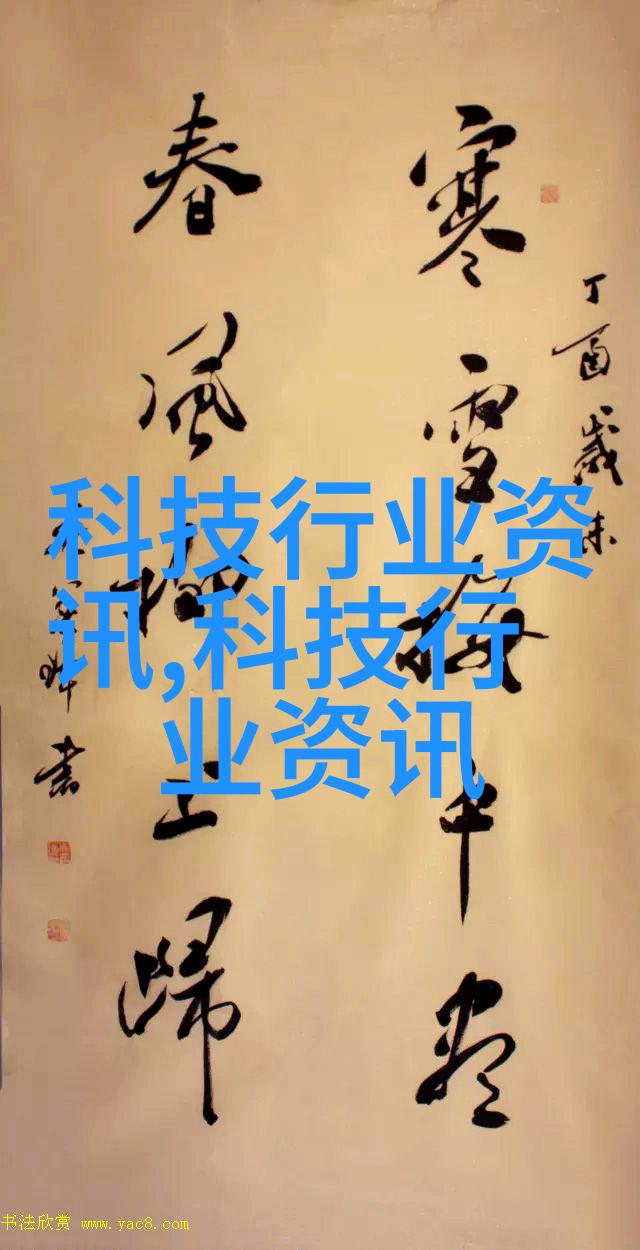 丁酉歲末
寒雪梅中尽
春風柳上歸
書
科技行业资
讯,科技行
业资讯
书法欣赏 www.yac8.com